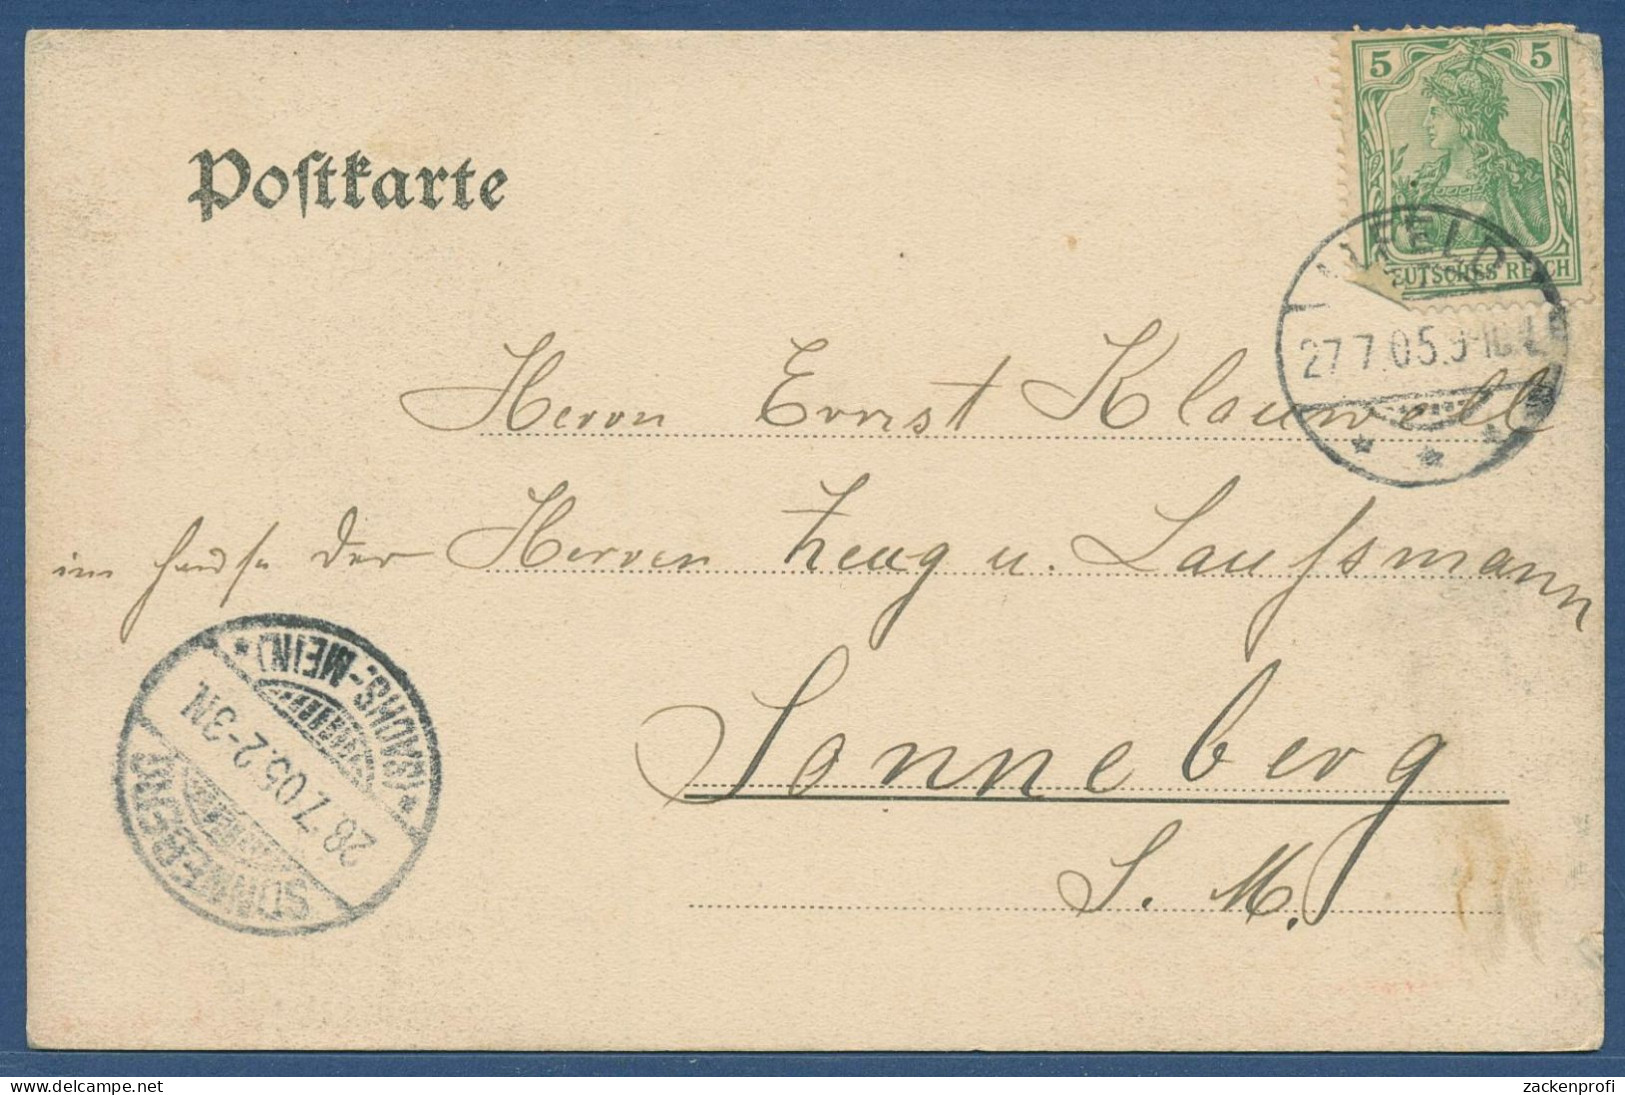 Postkarte
5 5
DEUTSCHES REICH
ILFELD
27.7.05.9-10.V.
Herrn Ernst Klauwell
im Hause der Herren Zeug u. Laufsmann
Sonneberg
S. M.
SONNEBERG
28.7.05.2-3N.
* (SACHS.-MEIN) *
zackenprofi